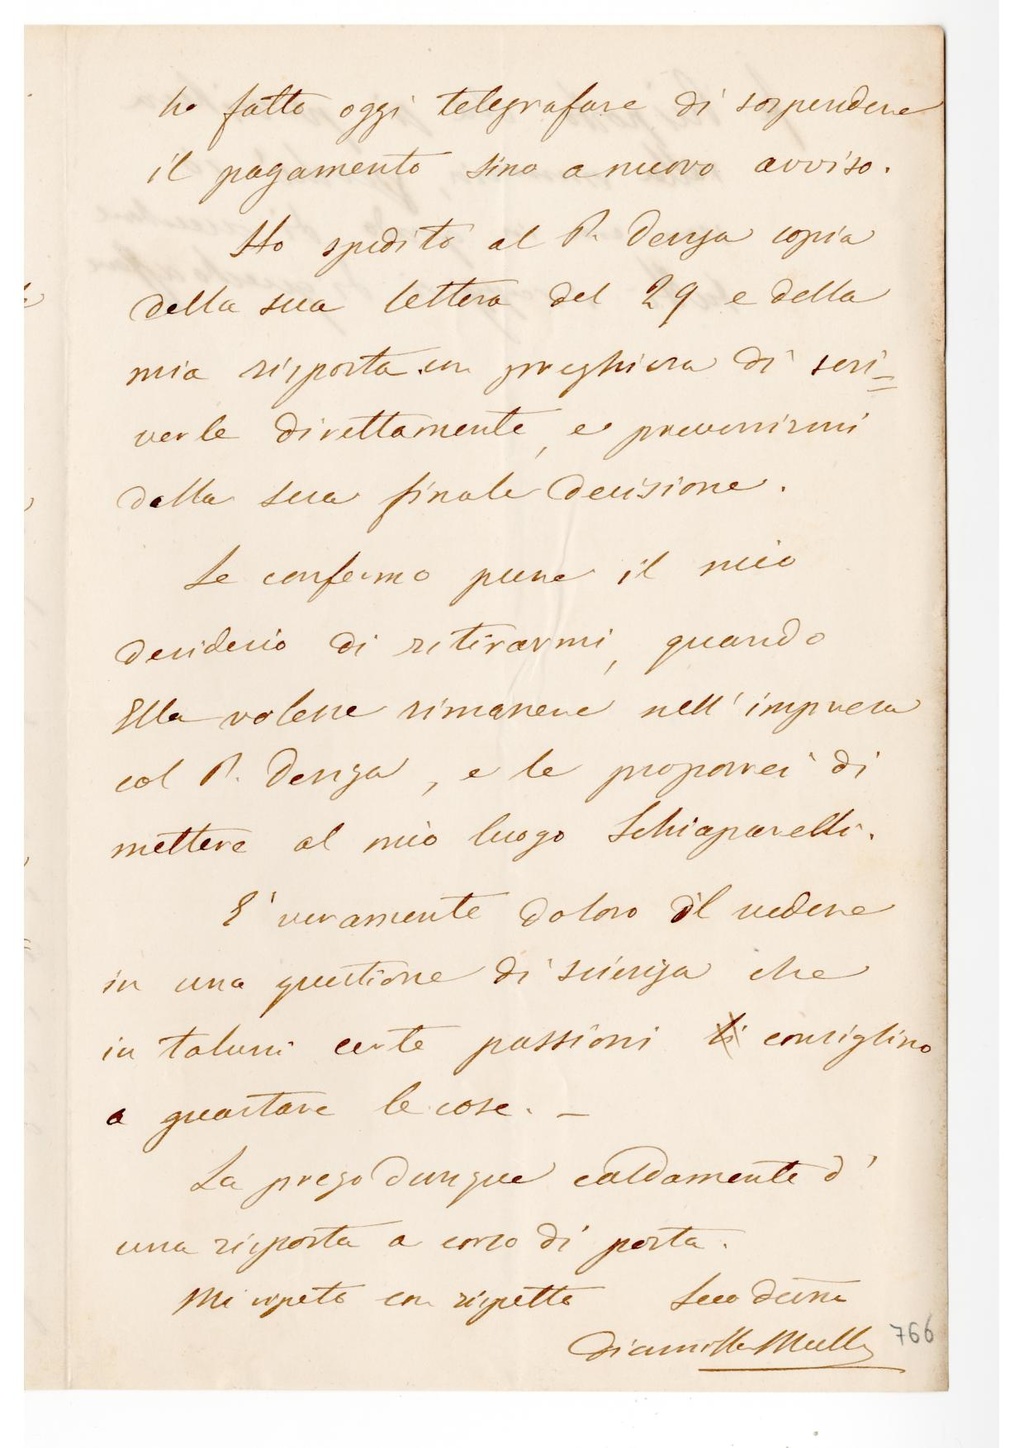 ho fatto oggi telegrafare di sospendere
il pagamento sino a nuovo avviso.
Ho spedito al P. Denza copia
della sua lettera del 29 e della
mia risposta con preghiera di scri=
verle direttamente, e prevenirmi
della sua finale decisione.
Le confermo pure il mio
desiderio di ritirarmi, quando
Ella volesse rimanere nell'impresa
col P. Denza, e le proporrei di
mettere al mio luogo Schiaparelli.
E' veramente doloro il vedere
in una questione di scienza che
in taluni certe passioni consiglino
a guastare le cose. —
La prego dunque caldamente d'
una risposta a corso di posta.
Mi ripeto con rispetto Suo
Diamilla Muller
766